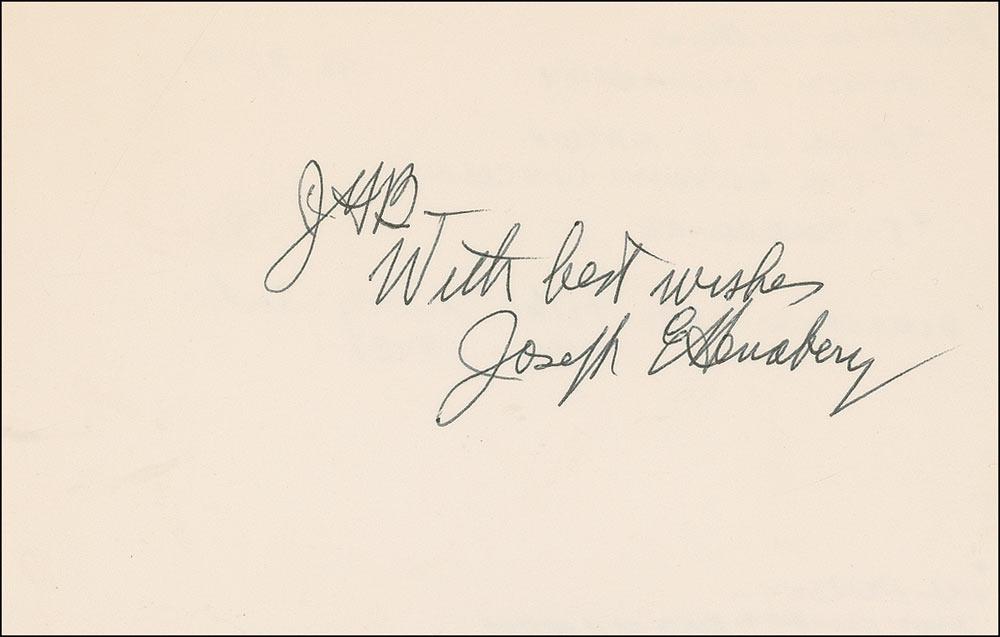 JHB
With best wishes
Joseph E Henabery